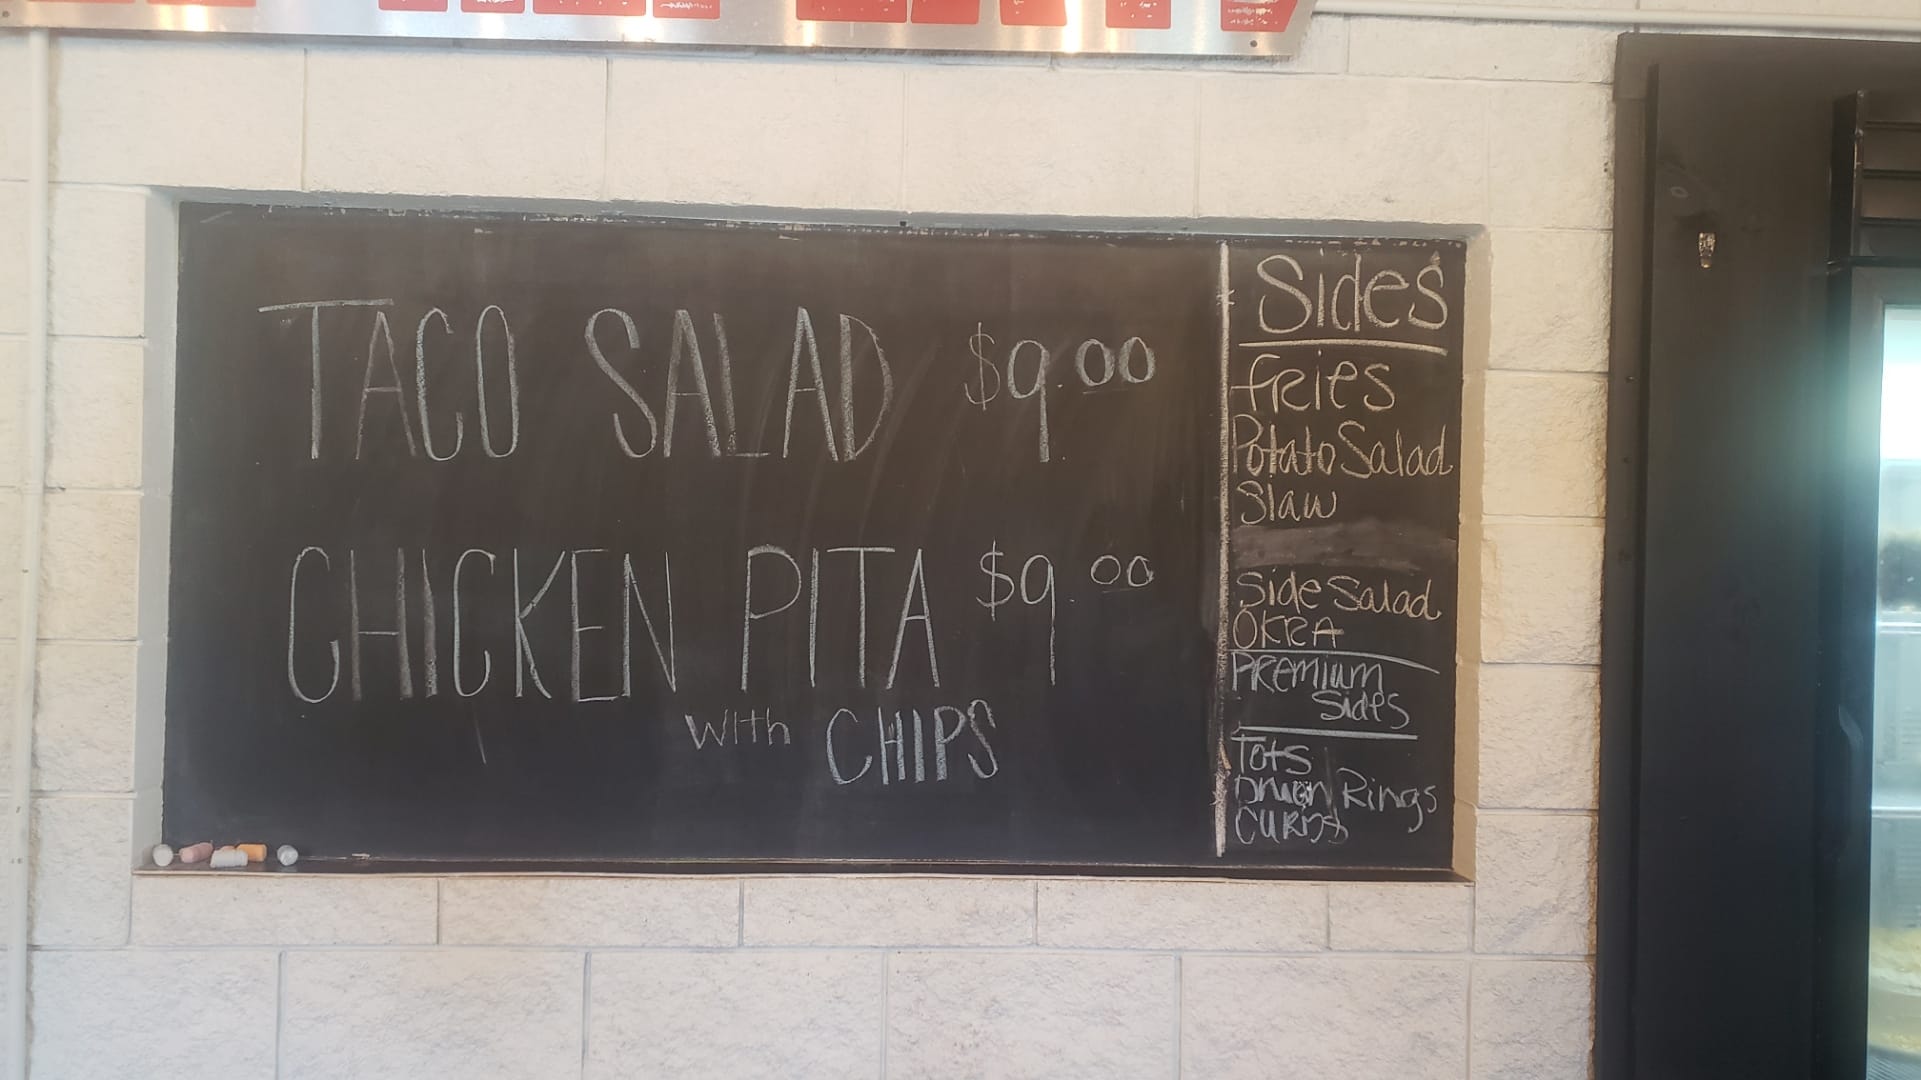 TACO SALAD $9.00
CHICKEN PITA $9.00
with CHIPS
Sides
fries
Potato Salad
Slaw
Side Salad
OKRA
PREMIUM
Sides
Tots
Onion Rings